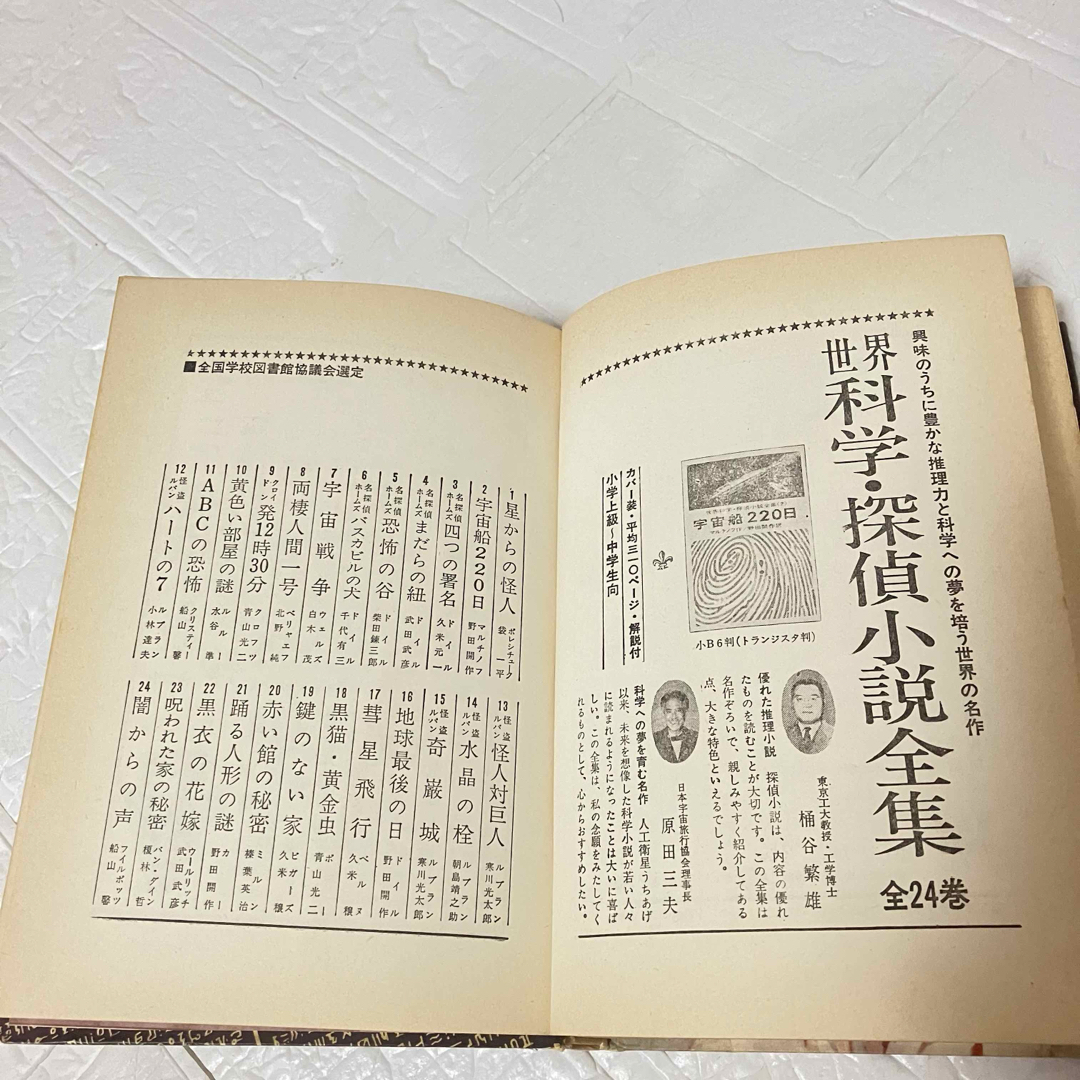 興味のうちに豊かな推理力と科学への夢を培う世界の名作
世界
科学・探偵小説全集
全24巻
宇宙船220日
小B6判(トランジスタ判)
カバー装・平均三一〇ページ・解説付
小学上級〜中学生向
東京工大教授・工学博士
桶谷繁雄
優れた推理小説 探偵小説は、内容の優れ
たものを読むことが大切です。この全集は
名作ぞろいで、親しみやすく紹介してある
点、大きな特色といえるでしょう。
日本宇宙旅行協会理事長
原田三夫
科学への夢を育む名作 人工衛星うちあげ
以来、未来を想像した科学小説が若い人々
に読まれるようになったことは大いに喜ば
しい。この全集は、私の念願をみたしてく
れるものとして、心からおすすめしたい。
■全国学校図書館協議会選定
1 星からの怪人 ボレシチューク 袋 一平
2 宇宙船220日 マルチノフ 野田開作
3 名探偵ホームズ 四つの署名 ドイル 久米元一
4 名探偵ホームズ まだらの紐 ドイル 武田武彦
5 名探偵ホームズ 恐怖の谷 ドイル 柴田錬三郎
6 名探偵ホームズ バスカビルの犬 ドイル 千代有三
7 宇宙戦争 ウェルズ 白木茂
8 両棲人間一号 ベリャェフ 北野純
9 クロイドン発12時30分 クロフツ 青山光二
10 黄色い部屋の謎 ルルー 水谷準
11 ABCの恐怖 クリスティー 船山馨
12 怪盗ルパン ハートの7 ルブラン 小林達夫
13 怪盗ルパン 怪人対巨人 ルブラン 寒川光太郎
14 怪盗ルパン 水晶の栓 ルブラン 朝島靖之助
15 怪盗ルパン 奇巌城 ルブラン 寒川光太郎
16 地球最後の日 ドイル 野田開作
17 彗星飛行 ベルヌ 久米穣
18 黒猫・黄金虫 ポー 青山光二
19 鍵のない家 ビガーズ 久米穣
20 赤い館の秘密 ミルン 榛葉英治
21 踊る人形の謎 カー 野田開作
22 黒衣の花嫁 ウールリッチ 武田武彦
23 呪われた家の秘密 バン・ダイン 榎林哲
24 闇からの声 フイルポッツ 船山馨